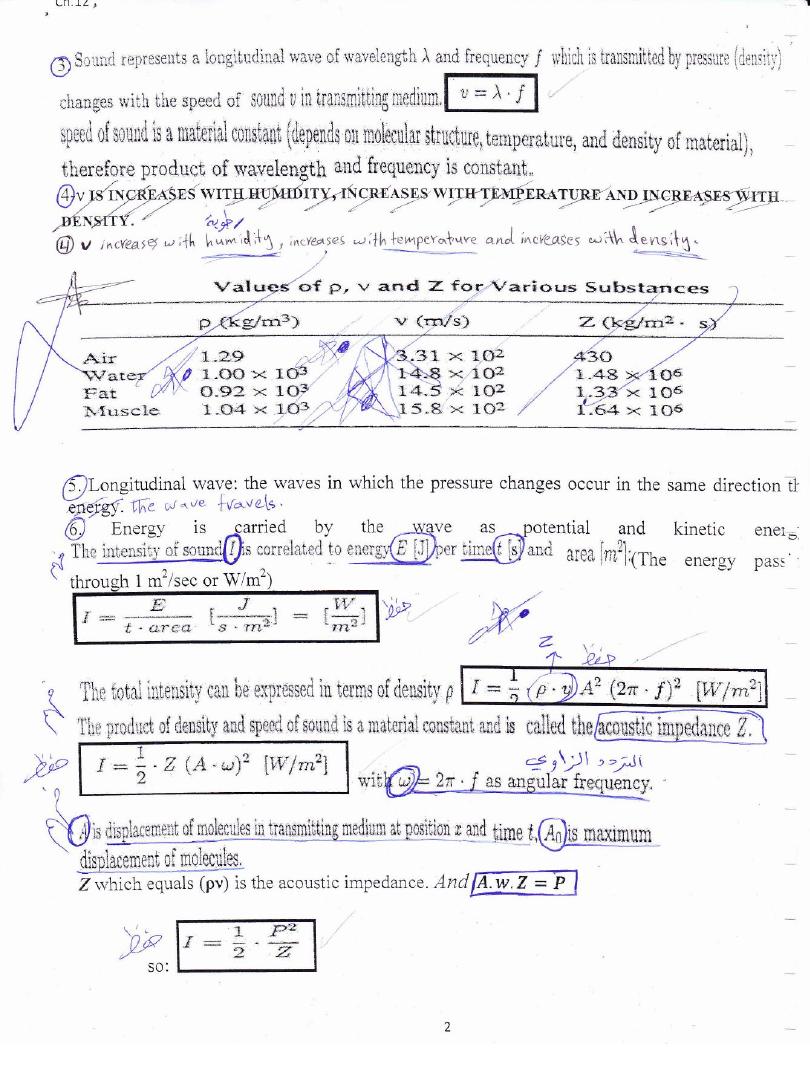 Ch.12 ,
③ Sound represents a longitudinal wave of wavelength λ and frequency f which is transmitted by pressure (density)
changes with the speed of sound v in transmitting medium. v = λ · f
speed of sound is a material constant (depends on molecular structure, temperature, and density of material),
therefore product of wavelength and frequency is constant.
④ v IS INCREASES WITH HUMIDITY, INCREASES WITH TEMPERATURE AND INCREASES WITH
DENSITY. رطوبة
④ v increases with humidity, increases with temperature and increases with density.
Values of ρ, v and Z for Various Substances
ρ (kg/m³) v (m/s) Z (kg/m² · s)
Air 1.29 3.31 × 10² 430
Water 1.00 × 10³ 14.8 × 10² 1.48 × 10⁶
Fat 0.92 × 10³ 14.5 × 10² 1.33 × 10⁶
Muscle 1.04 × 10³ 15.8 × 10² 1.64 × 10⁶
⑤. Longitudinal wave: the waves in which the pressure changes occur in the same direction th
energy. The wave travels.
⑥. Energy is carried by the wave as potential and kinetic energ
The intensity of sound I is correlated to energy E [J] per time t [s] and area [m²]:(The energy pass
through 1 m²/sec or W/m²)
I = E / t · area [J / s · m²] = [W / m²] حفظ
Z
حفظ
The total intensity can be expressed in terms of density ρ I = 1/2 (ρ · v) A² (2π · f)² [W/m²]
The product of density and speed of sound is a material constant and is called the acoustic impedance Z.
حفظ I = 1/2 · Z (A · ω)² [W/m²] التردد الزاوي
with ω = 2π · f as angular frequency.
A is displacement of molecules in transmitting medium at position x and time t, A₀ is maximum
displacement of molecules.
Z which equals (ρv) is the acoustic impedance. And A.w.Z = P
حفظ so: I = 1/2 · P²/Z
2